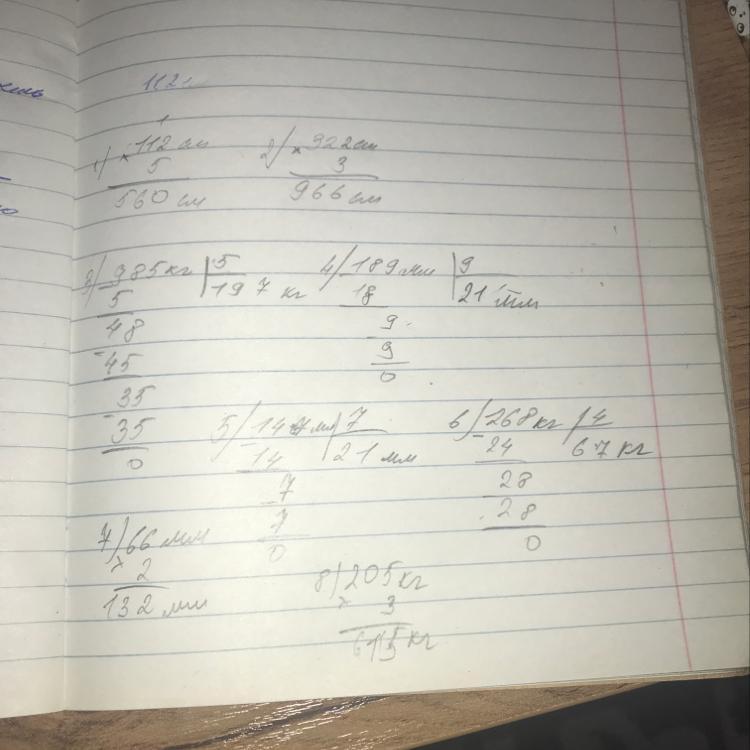 112
1
1) × 112 см
5
560 см
2) × 322 см
3
966 см
3) 985 кг | 5
5
197 кг
48
45
35
35
0
4) 189 мм | 9
18
21 мм
9
9
0
5) 147 мм | 7
14
21 мм
7
7
0
6) 268 кг | 4
24
67 кг
28
28
0
7) 66 мм
× 2
132 мм
8) 205 кг
× 3
615 кг